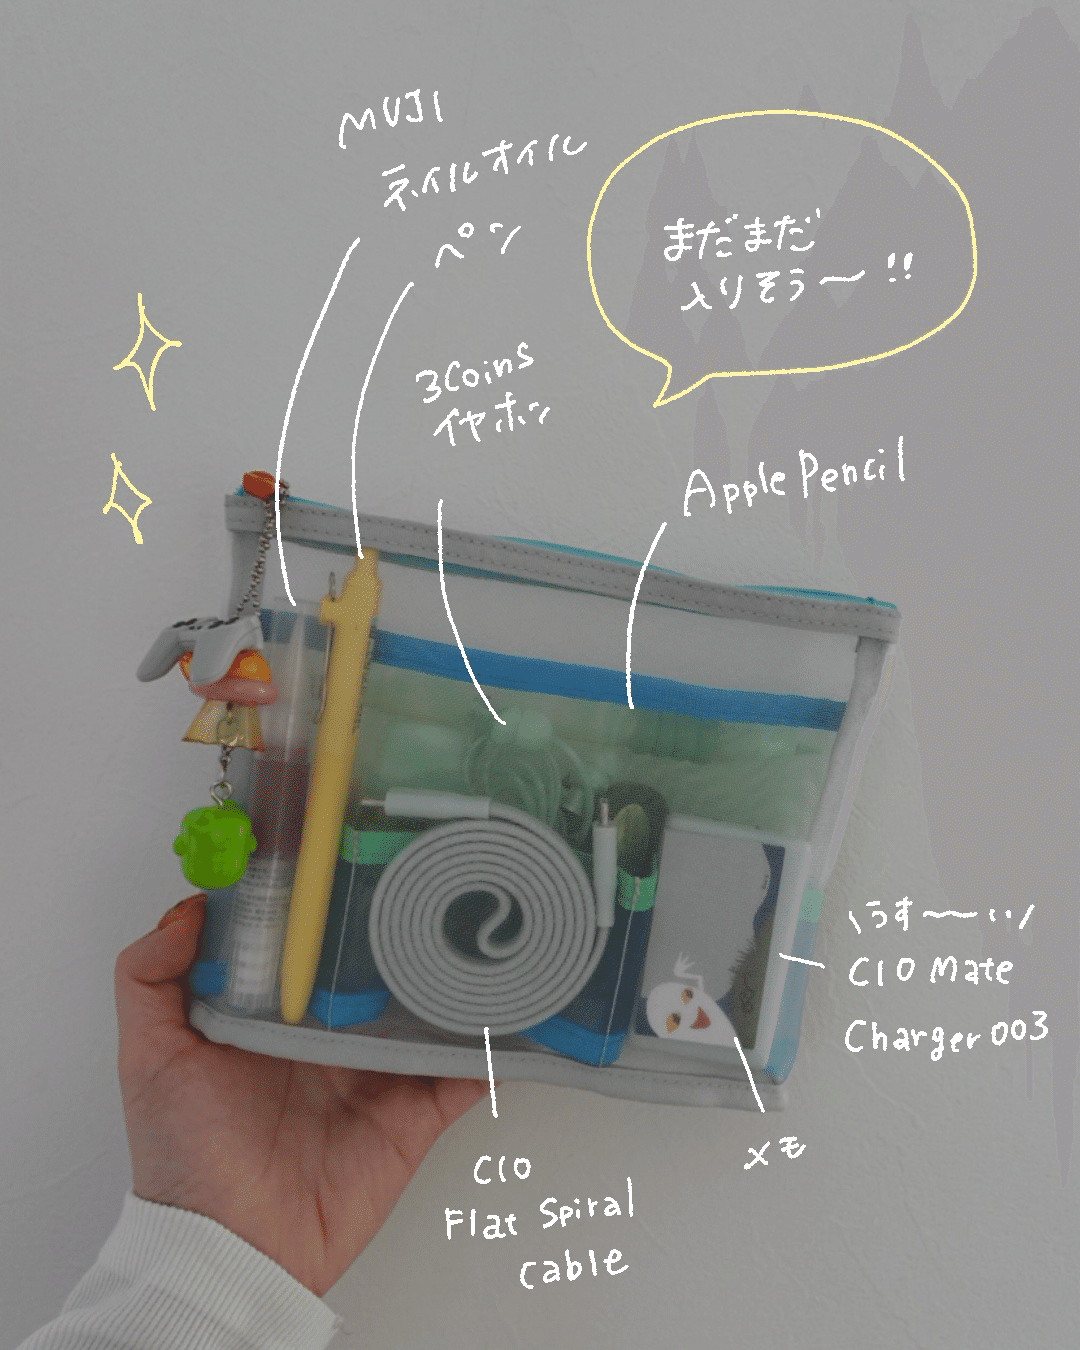 MUJI
ネイルオイル
ペン
まだまだ
入りそう〜!!
3Coins
イヤホン
Apple Pencil
\うす〜〜い/
CIO Mate
Charger 003
メモ
CIO
Flat Spiral
Cable